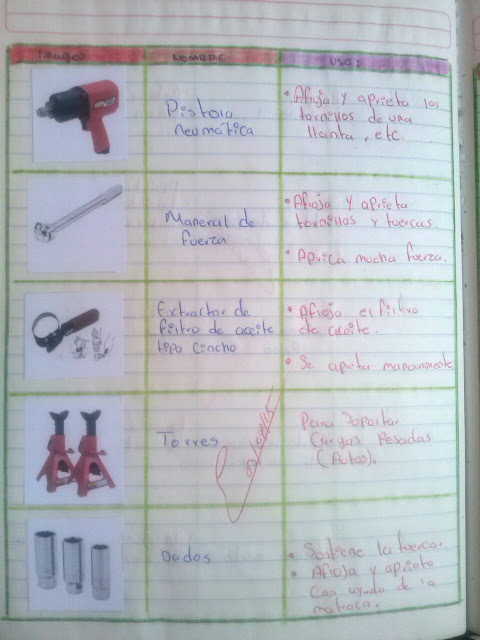 Imagen
NOMBRE
USO:
Pistola
neumática
• Afloja y aprieta los
tornillos de una
llanta, etc.
Maneral de
fuerza
• Afloja y aprieta
tornillos y tuercas.
• Aprica mucha fuerza.
Extractor de
filtro de aceite
tipo cincho
• Afloja el filtro
de aceite.
• Se aprieta manualmente
Torres
Para Soportar
Cargas Pesadas
(Autos).
Dados
• Sostiene la tuerca.
• Afloja y aprieta
Con ayuda de la
matraca.